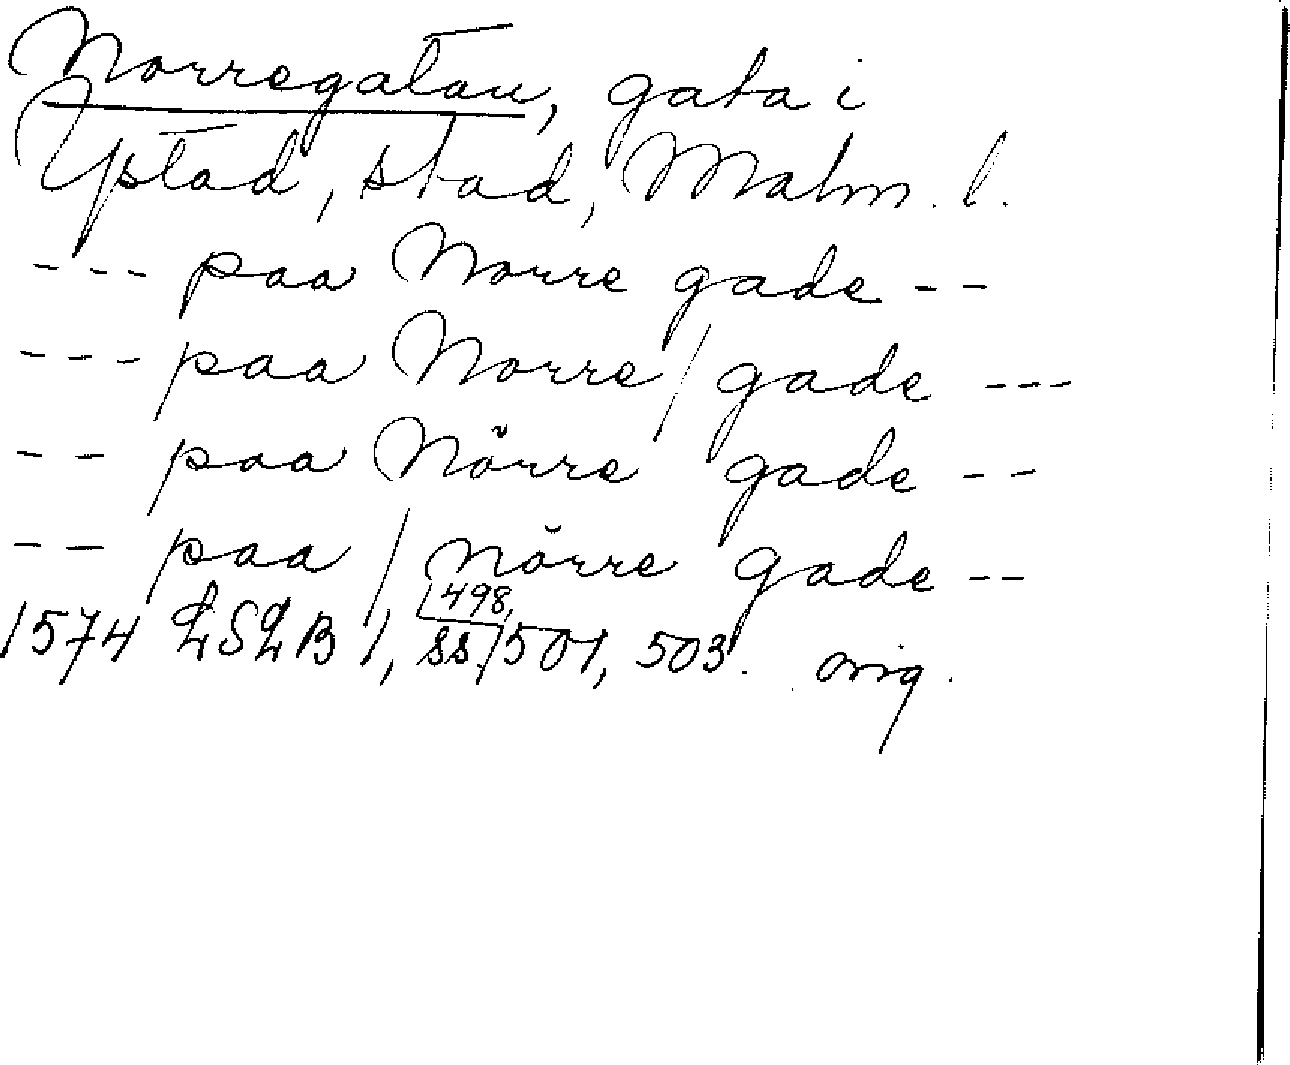 Norregatan, gata i
Ystad, stad, Malm. l.
--- paa Norre gade --
--- paa Norre / gade ---
-- paa Nörre gade --
-- paa / nörre gade --
1574 LSLB 1, ss. 498, 501, 503. orig.